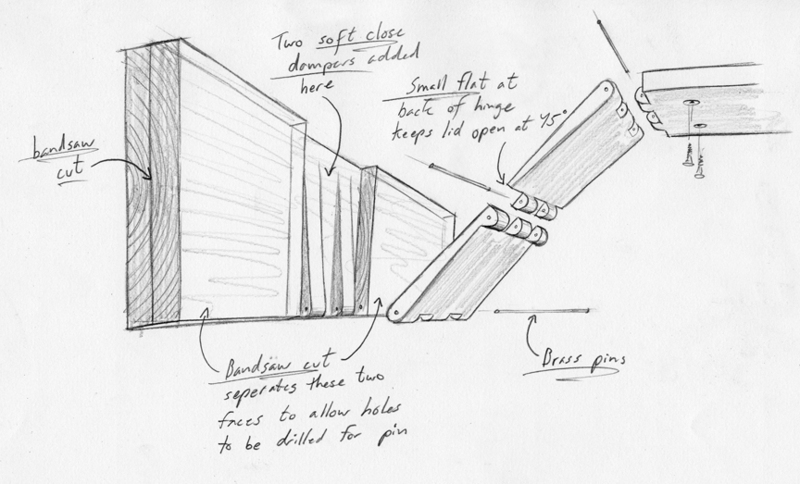 Two soft close
dampers added
here
Small flat at
back of hinge
keeps lid open at 45°
bandsaw
cut
Bandsaw cut
seperates these two
faces to allow holes
to be drilled for pin
Brass pins